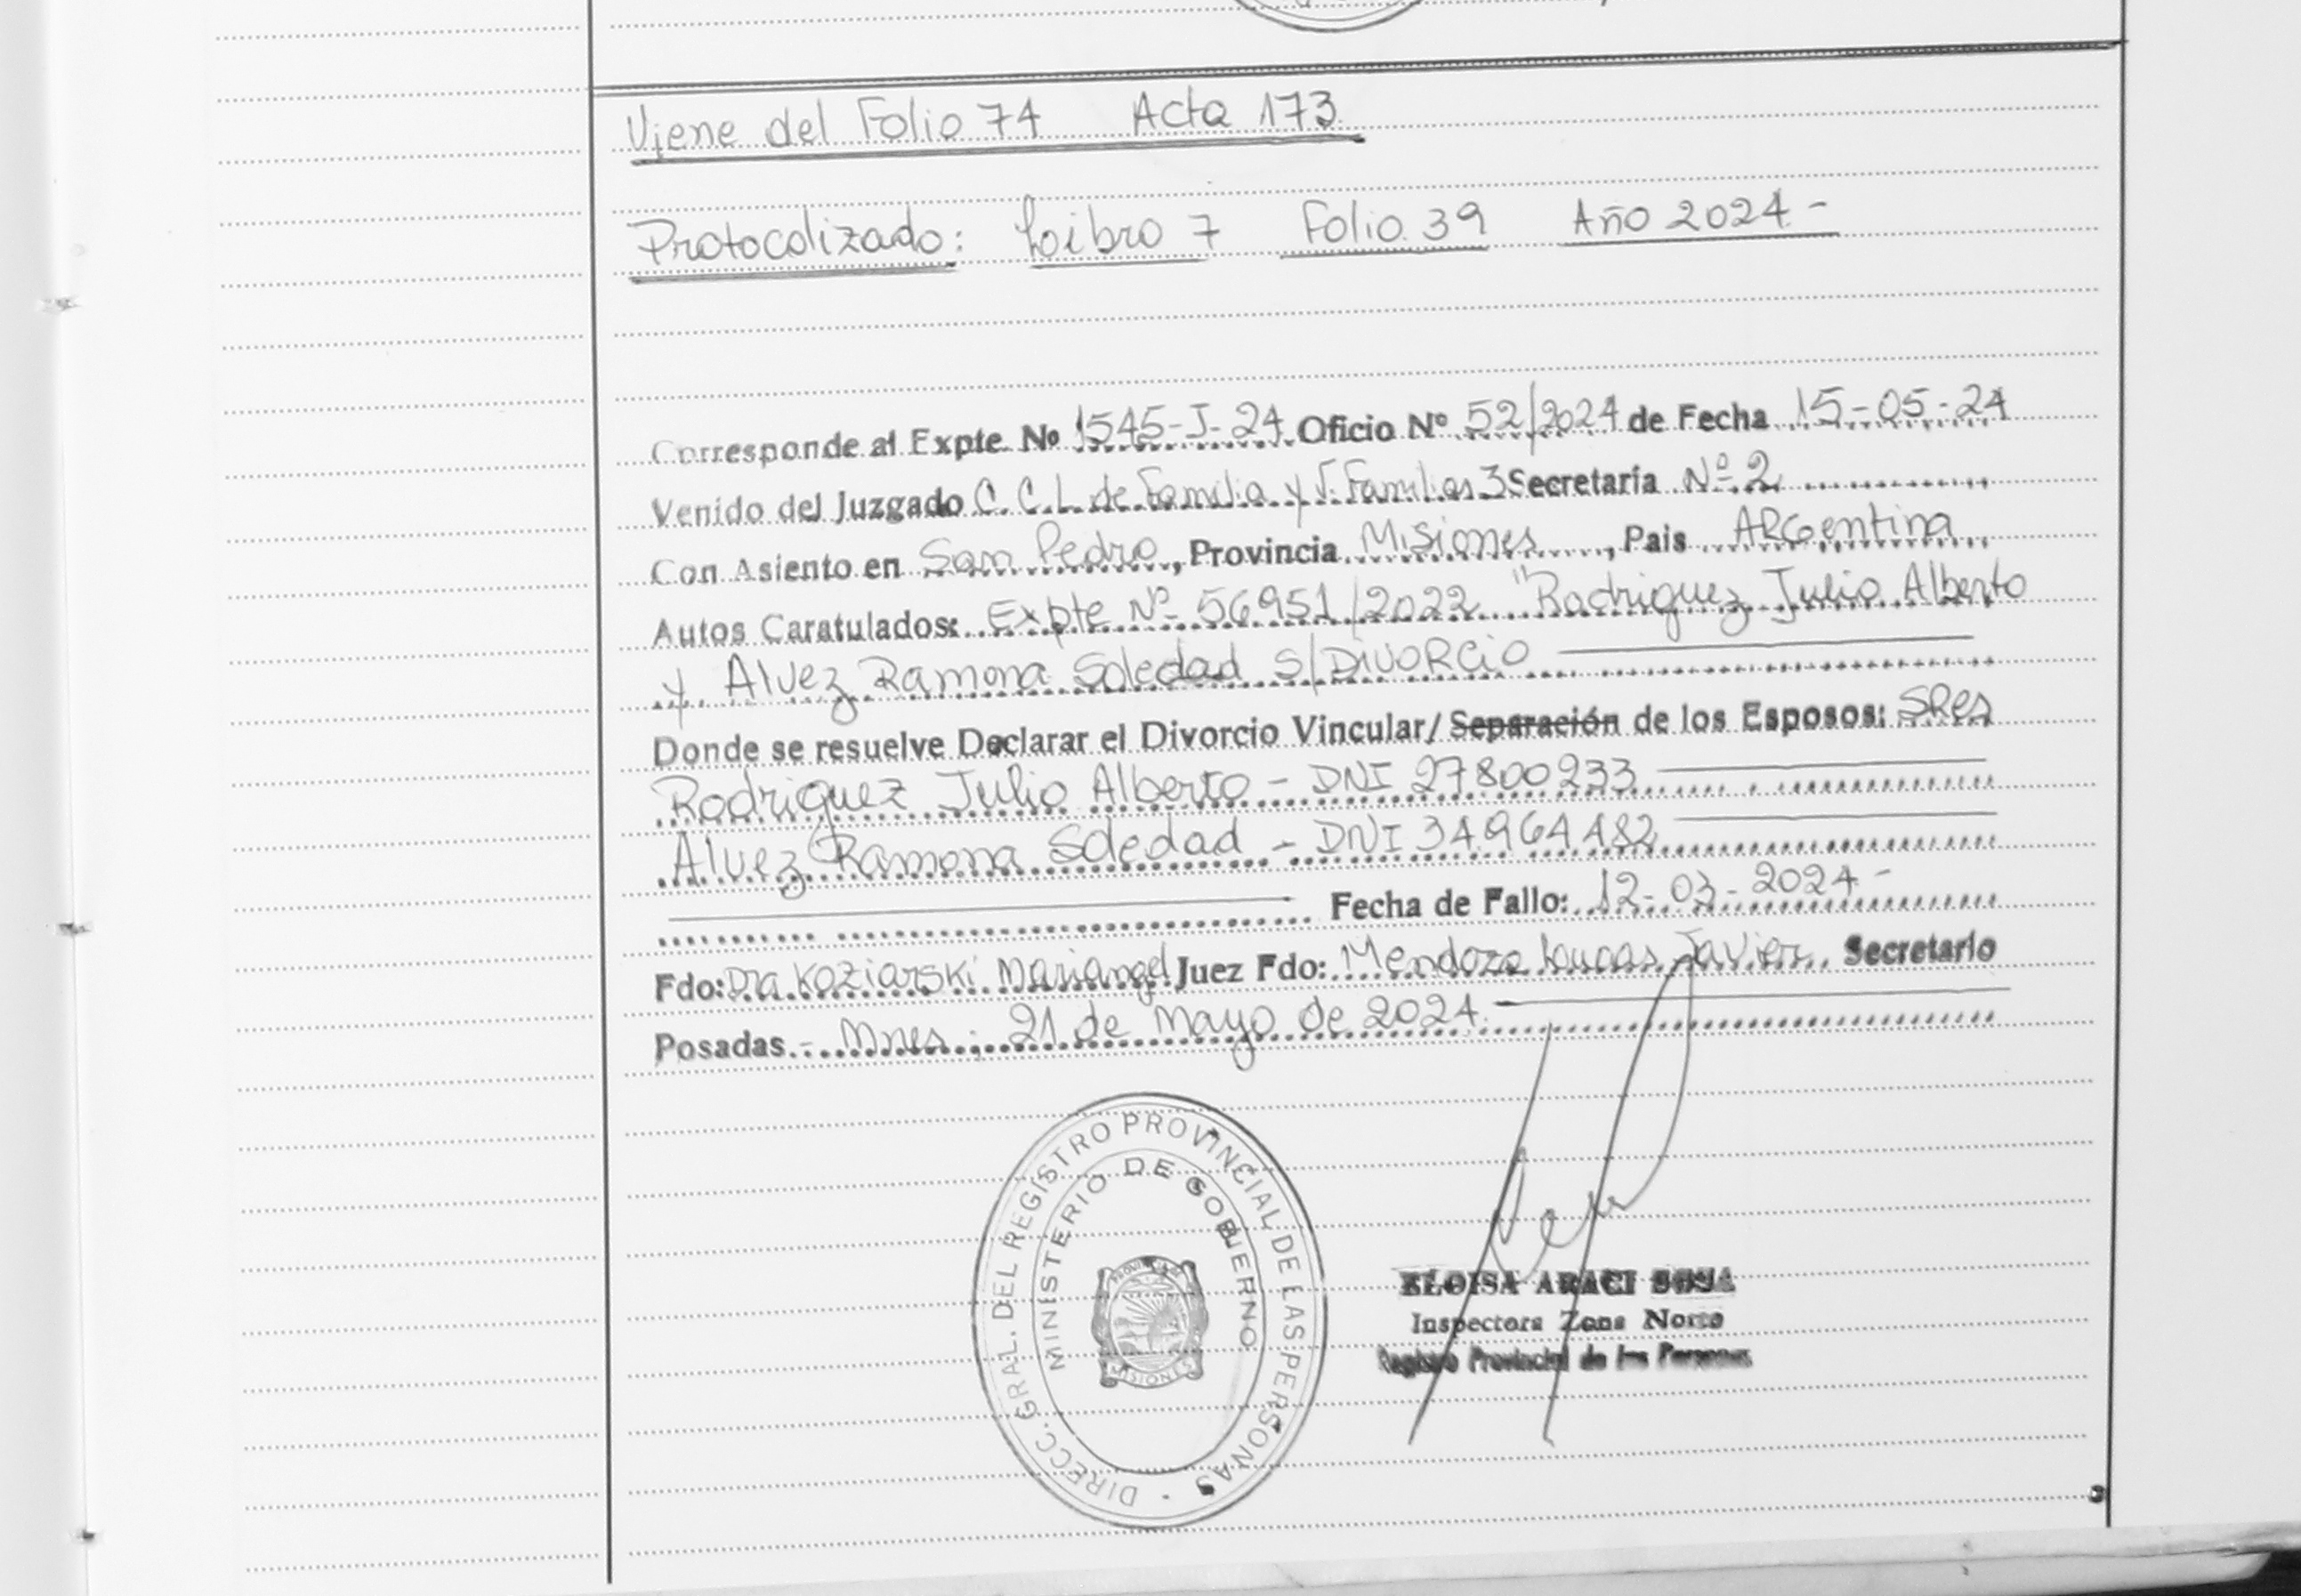 Viene del Folio 74 Acta 173
Protocolizado: Libro 7 Folio 39 Año 2024-
Corresponde al Expte. Nº 1545-J-24 Oficio Nº 52/2024 de Fecha 15-05-24
Venido del Juzgado C. C. L. de Familia y V. Familiar 3 Secretaría Nº 2
Con Asiento en San Pedro, Provincia Misiones, Pais ARGentina
Autos Caratulados: Expte Nº 56951/2022 "Rodriguez Julio Alberto
y Alvez Ramona Soledad S/DIVORCIO
Donde se resuelve Declarar el Divorcio Vincular/ Separación de los Esposos: SRes
Rodriguez Julio Alberto - DNI 27800233
Alvez Ramona Soledad - DNI 34.964.482
Fecha de Fallo: 12-03-2024-
Fdo: Dra Koziarski Mariangel Juez Fdo: Mendoza Lucas Javier Secretario
Posadas.- Mnes; 21 de Mayo de 2024.
DIRECC. GRAL. DEL REGISTRO PROVINCIAL DE LAS PERSONAS
MINISTERIO DE GOBIERNO
MISIONES
ELOISA ARACI SOSA
Inspectora Zona Norte
Registro Provincial de las Personas